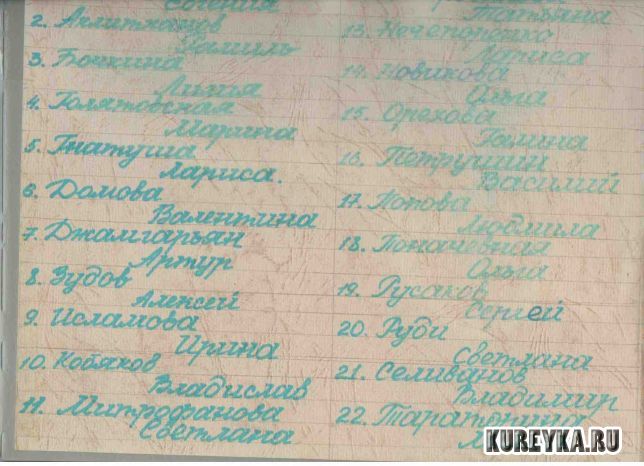 Евгения
2. Ахмитханов
Рамиль
3. Бочкина
Лилия
4. Голятовская
Марина
5. Гнатуша
Лариса.
6. Домова
Валентина
7. Джамгарьян
Артур
8. Зудов
Алексей
9. Исламова
Ирина
10. Кобяков
Владислав
11. Митрофанова
Светлана
Татьяна
13. Нечепоренко
Лариса
14. Новикова
Ольга
15. Орехова
Галина
16. Петрушин
Василий
17. Попова
Людмила
18. Поначевная
Ольга
19. Русаков
Сергей
20. Руди
Светлана
21. Селиванов
Владимир
22.
KUREYKA.RU